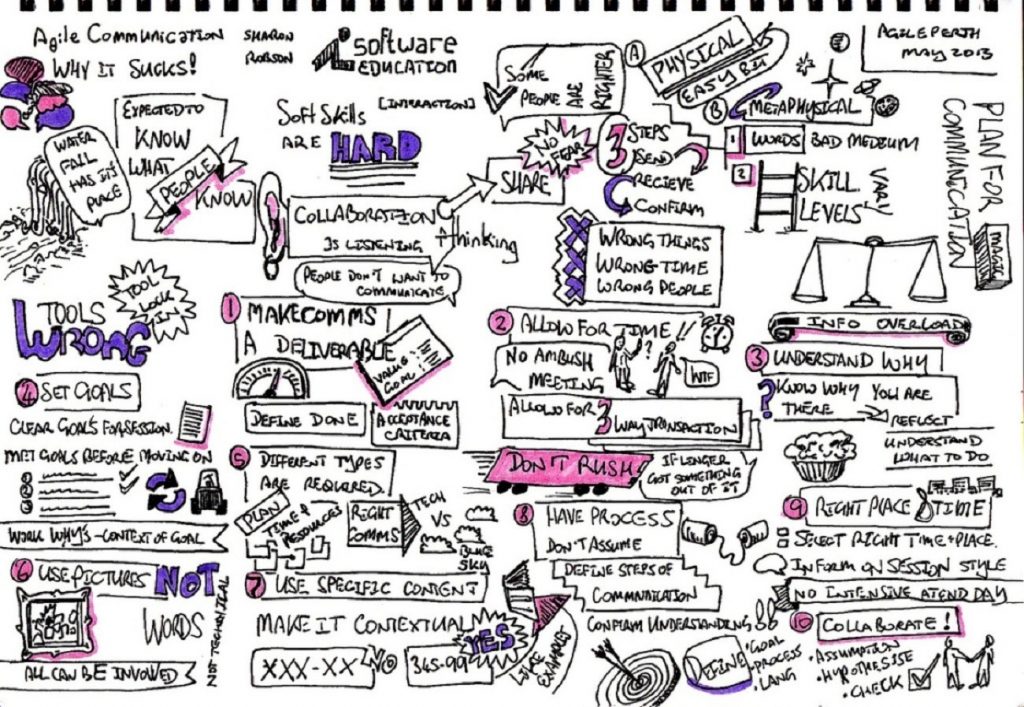 Agile Communication
WHY IT SUCKS!
SHARON
ROBSON
SOFTWARE
EDUCATION
AGILEPERTH
MAY 2013
WATER
FALL
HAS ITS
PLACE
EXPECTED TO
KNOW
WHAT
PEOPLE
KNOW
Soft Skills
[INTERACTION]
ARE HARD
COLLABORATION
IS LISTENING + Thinking
PEOPLE DON'T WANT TO
COMMUNICATE
SOME
PEOPLE ARE
NO FEAR
SHARE
A
PHYSICAL
EASY BIT
B
METAPHYSICAL
3 STEPS
SEND
RECIEVE
CONFIRM
1
WORDS BAD MEDIUM
2
SKILL
LEVELS VARY
WRONG THINGS
WRONG TIME
WRONG PEOPLE
PLAN FOR
COMMUNICATION
INFO OVERLOAD
TOOLS
WRONG
TOOL
LOCK
IN
1 MAKE COMMS
A DELIVERABLE
VALUE?
GOAL!
DEFINE DONE
ACCEPTANCE
CRITERIA
2 ALLOW FOR TIME
?
!!
NO AMBUSH
MEETING
WTF
ALLOW FOR 3
WAY TRANSACTION
DON'T RUSH!
IF LONGER
GOT SOMETHING
OUT OF IT
3 UNDERSTAND WHY
? KNOW WHY YOU ARE
THERE
REFLECT
UNDERSTAND
WHAT TO DO
4 SET GOALS
CLEAR GOALS FOR SESSION.
MET GOALS BEFORE MOVING ON
1
2
3
WORK WHY'S - CONTEXT OF GOAL
5 DIFFERENT TYPES
ARE REQUIRED
PLAN
TIME &
RESOURCES
RIGHT
COMMS
TECH
VS
BLUE
SKY
6 USE PICTURES NOT
WORDS
NOT TECHNICAL
ALL CAN BE INVOLVED
7 USE SPECIFIC CONTENT
MAKE IT CONTEXTUAL
YES
XXX-XX NO
345-99
LIKE
EXAMPLES
8 HAVE PROCESS
DON'T ASSUME
DEFINE STEPS OF
COMMUNICATION
CONFIRM UNDERSTANDING
DEFINE
• GOAL
• PROCESS
• LANG
9 RIGHT PLACE & TIME
SELECT RIGHT TIME + PLACE.
INFORM ON SESSION STYLE
NO INTENSIVE AT END DAY
10 COLLABORATE!
• ASSUMPTION
• HYPOTHESISE
• CHECK